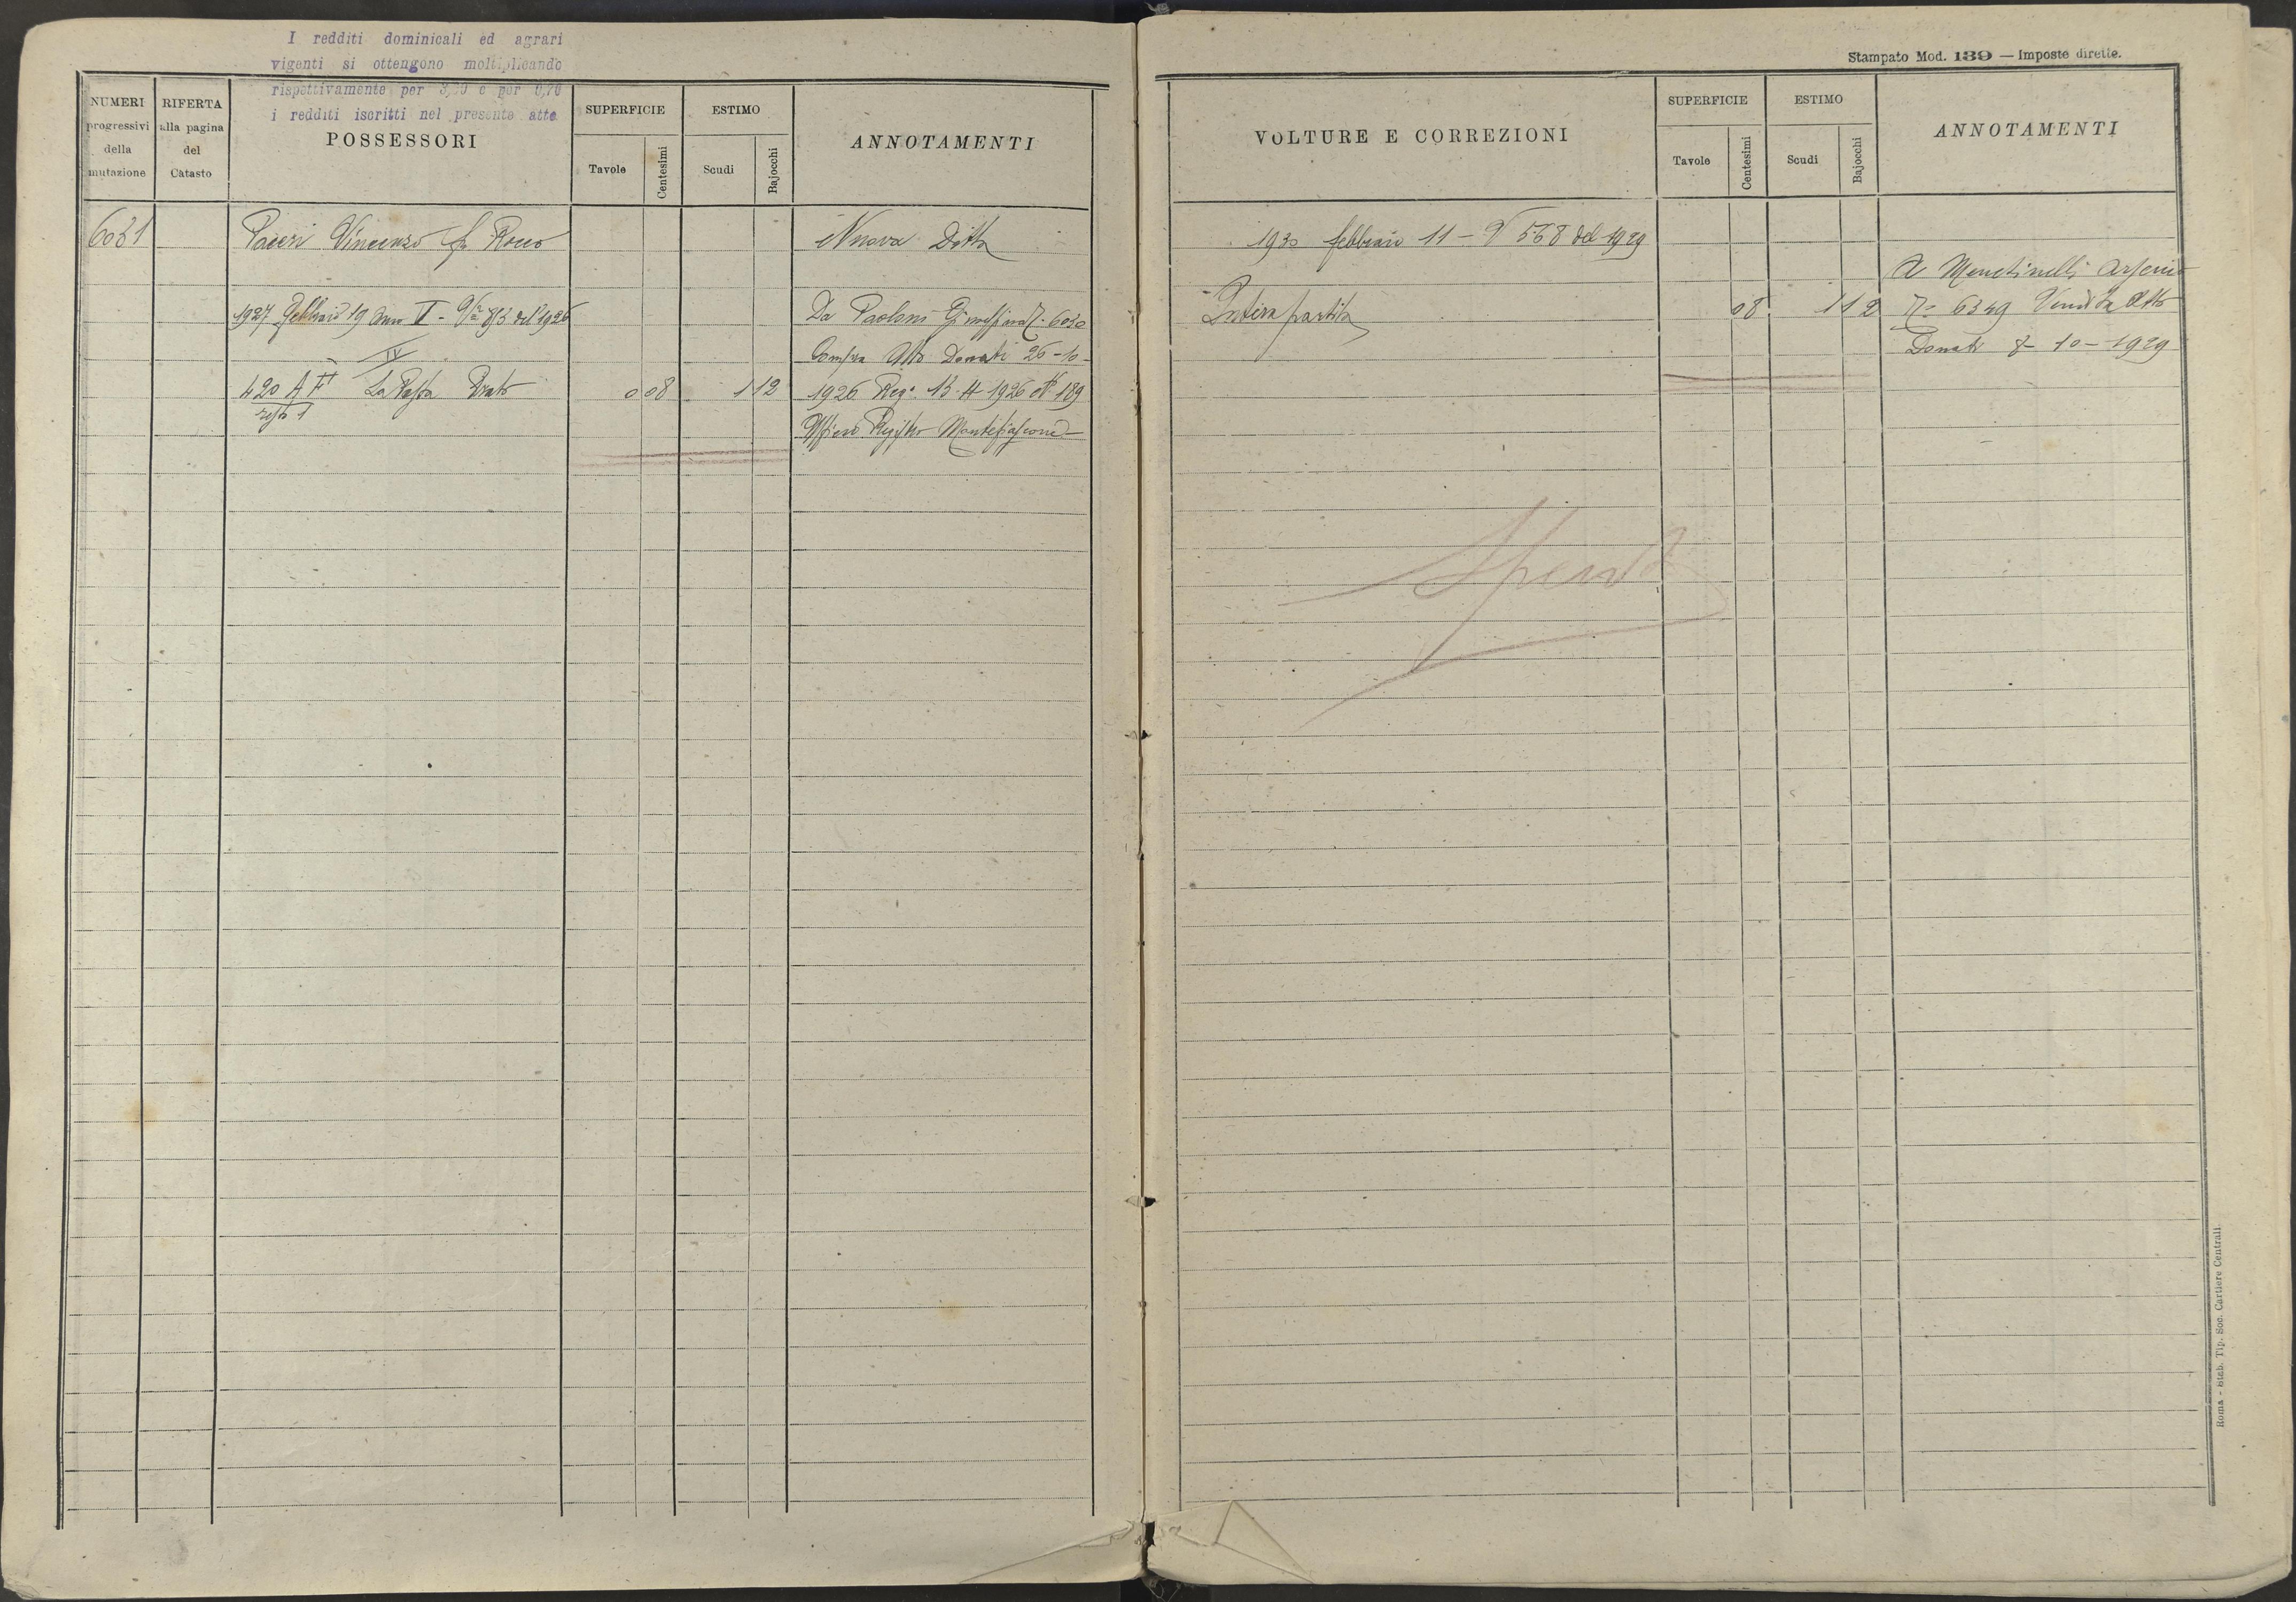 I redditi dominicali ed agrari
vigenti si ottengono moltiplicando
rispettivamente per 3,50 e per 0,70
i redditi iscritti nel presente atto
NUMERI
progressivi
della
mutazione
RIFERTA
alla pagina
del
Catasto
POSSESSORI
SUPERFICIE
Tavole
Centesimi
ESTIMO
Scudi
Bajocchi
ANNOTAMENTI
6031
Vincenzo fu Rocco
Nuova Ditta
1927 Febbraio 19 del 1926
Da Paoloni Giuseppina 6030
IV
Compra Atto Donati 26-10
420 A Prato
0 08
1 12
1926 Reg. 13 1926 N 189
resto 1
Ufficio Registro Montefiascone
Stampato Mod. 139 — Imposte dirette.
VOLTURE E CORREZIONI
SUPERFICIE
Tavole
Centesimi
ESTIMO
Scudi
Bajocchi
ANNOTAMENTI
1930 febbraio 11 - V 568 del 1929
A Menchinelli Arsenio
Intera partita
08
1 12
6349 Vendita Atto
Donati 8-10-1929
Spenta
Roma - Stab. Tip. Soc. Cartiere Centrali